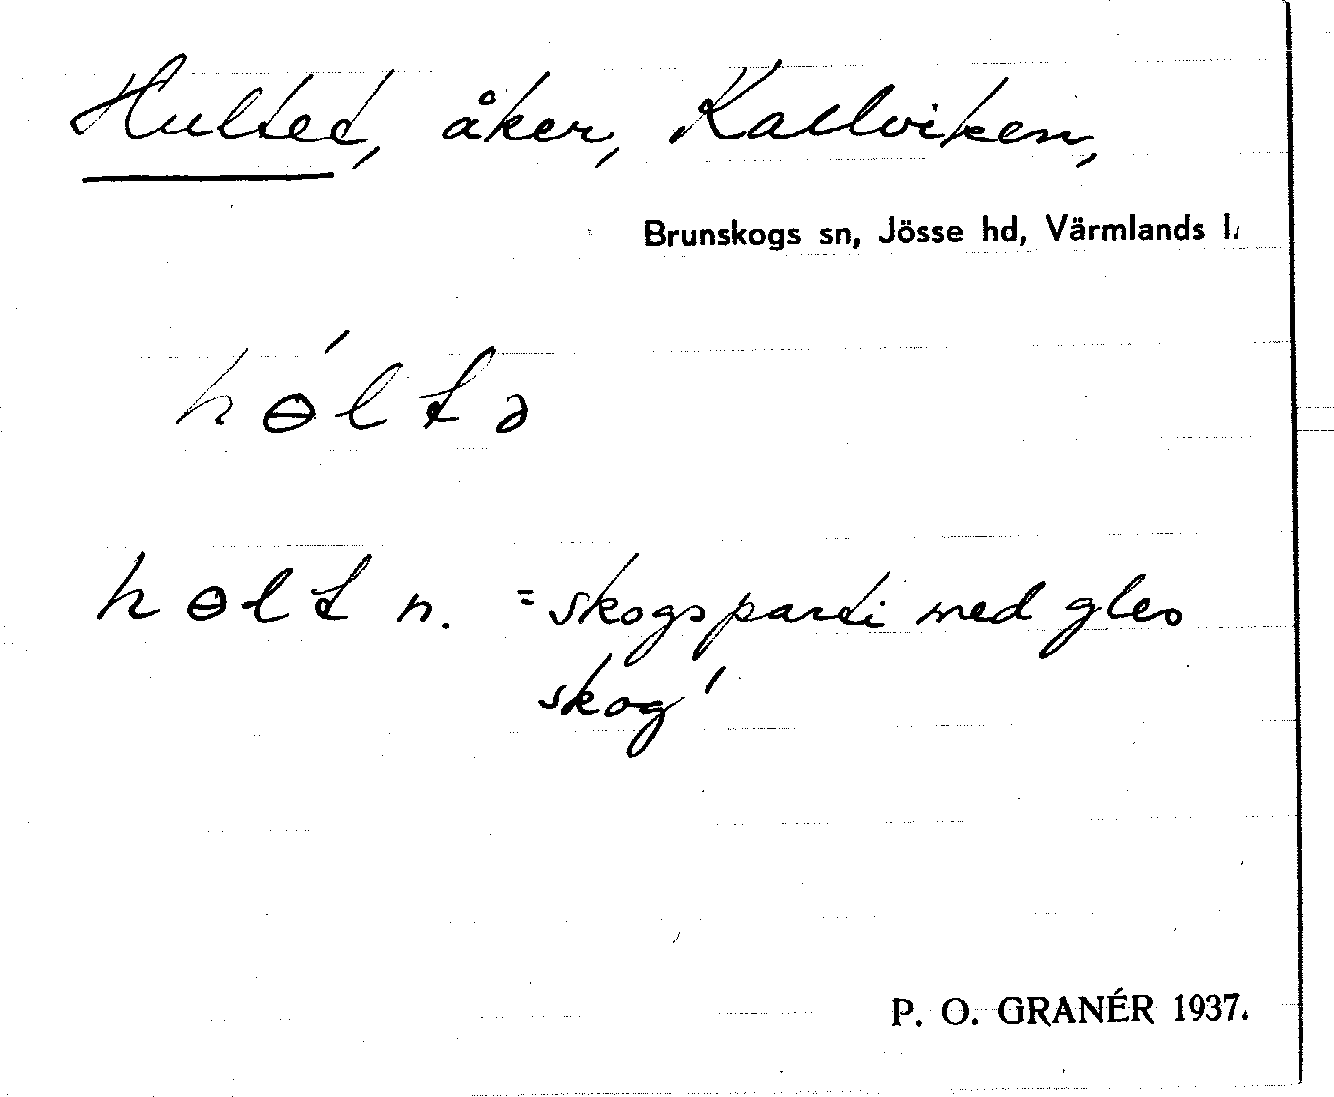 Hultet, åker, Kallviken,
Brunskogs sn, Jösse hd, Värmlands l.
hɵ́ltə
hɵlt n. = skogsparti med gles
skog'
P. O. GRANÉR 1937.